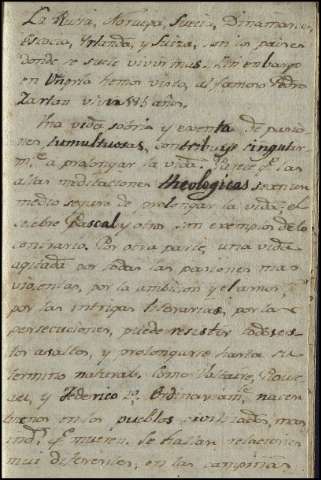 La Rusia, Noruega, Suecia, Dinamarca,
Escocia, Yrlanda, y Suiza, son los paises
donde se suele vivir mas. Sin embargo
en Ungria hemos visto, al famoso Pedro
Zartan vivir 185 años.
Una vida sobria y exenta de pasio
nes tumultuosas, contribuye singular
m.te a prolongar la vida. Parece q.e las
altas meditaciones theologicas son un
medio seguro de prolongar la vida; el
celebre Pascal y otros son exemplos de lo
contrario. Por otra parte, una vida
agitada por todas las pasiones mas
violentas, por la ambicion y el amor,
por las intrigas literarias, por las
persecuciones, puede resistir todos es
tos asaltos, y prolongarse hasta su
termino natural, como Voltaire, Rous
eau, y Federico 2.o Ordinariam.te nacen
menos en los pueblos civilizados, mas
ind.s q.e mueren. Se hallan relaciones
mui diferentes, en las campiñas